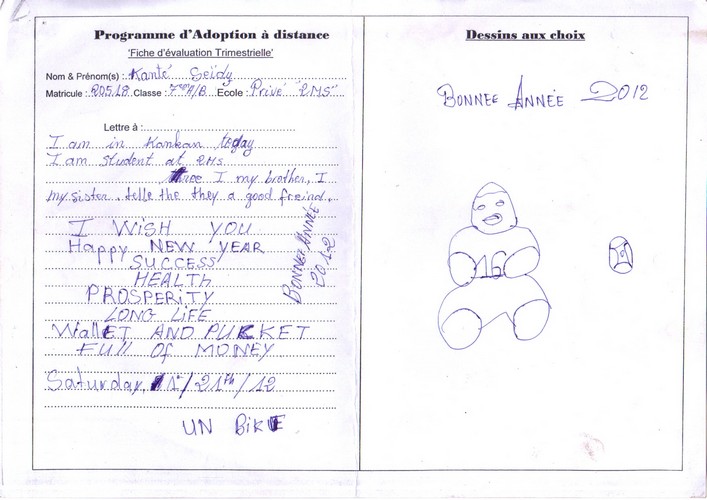 Programme d'Adoption à distance
'Fiche d'évaluation Trimestrielle'
Nom & Prénom(s) : Kanté Seïdy
Matricule : 20518 Classe : 7ème A/B Ecole : Privé "EMS"
Lettre à :
I am in Kankan today
I am student at EMS.
I my brother, I
my sister. telle the they a good freind.
I WiSH YOU
Happy NEW YEAR
SUCCESS
HEALTh
PROSPERiTY
LONG LiFE
WallET AND PUCKET
FUll Of MONEY
BONNEE ANNÉE
2012
Saturday, 1st/21th/12
UN BiKE
Dessins aux choix
BONNEE ANNÉE 2012
16